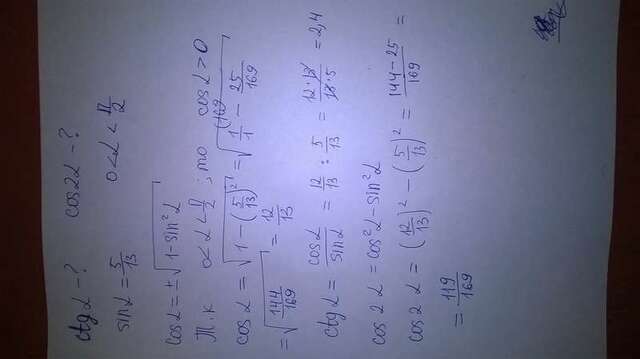 ctg α - ?   cos2α - ?
sin α = 5/13   0 < α < π/2
cos α = ±√(1 - sin²α)
т.к 0 < α < π/2, то cos α > 0
cos α = √(1 - (5/13)²) = √(1/1 (169 - 25/169) =
= √(144/169) = 12/13
ctg α = cos α/sin α = 12/13 : 5/13 = 12·13/13·5 = 2,4
cos 2α = cos²α - sin²α
cos 2α = (12/13)² - (5/13)² = 144-25/169 =
= 119/169